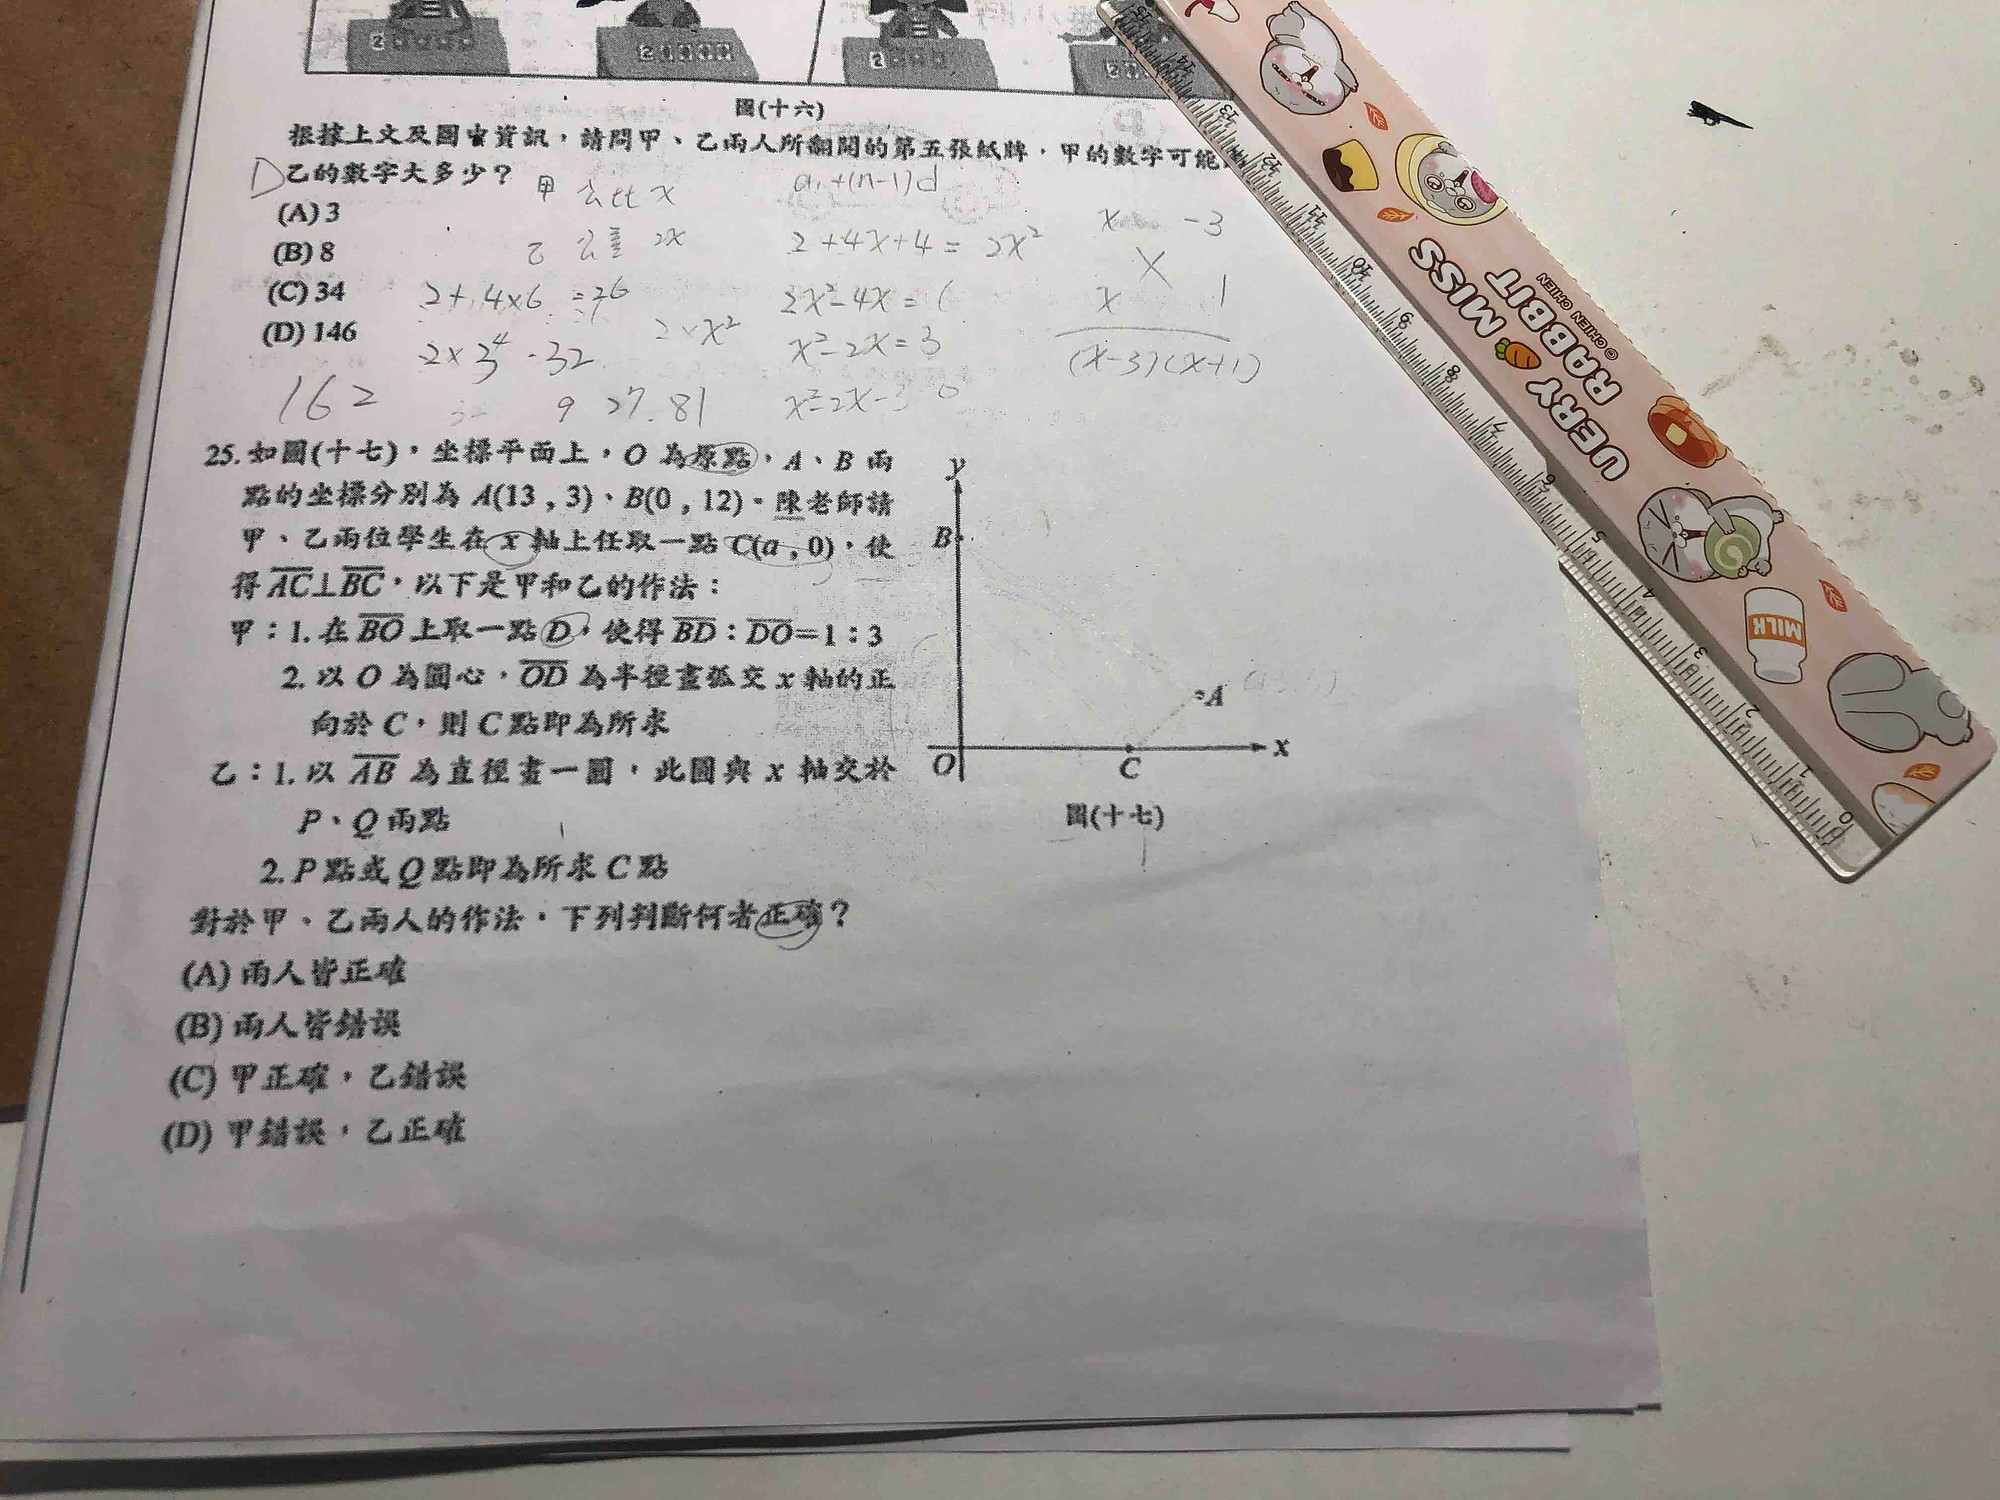 圖(十六)
根據上文及圖中資訊，請問甲、乙兩人所翻開的第五張紙牌，甲的數字可能
D 乙的數字大多少？
(A) 3
(B) 8
(C) 34
(D) 146
甲 公比 x
乙 公差 2x
2+4×6 =26
2×3⁴-32
162
2×x²
32
9 27.81
a₁+(n-1)d
2+4x+4=2x²
2x²-4x=6
x²-2x=3
x²-2x-3 0
x -3
x 1
(x-3)(x+1)
25. 如圖(十七)，坐標平面上，O 為原點，A、B 兩
點的坐標分別為 A(13 , 3)、B(0 , 12)。陳老師請
甲、乙兩位學生在 x 軸上任取一點 C(a , 0)，使
得 AC⊥BC，以下是甲和乙的作法：
甲：1. 在 BO 上取一點 D，使得 BD：DO=1：3
2. 以 O 為圓心，OD 為半徑畫弧交 x 軸的正
向於 C，則 C 點即為所求
乙：1. 以 AB 為直徑畫一圓，此圓與 x 軸交於
P、Q 兩點
2. P 點或 Q 點即為所求 C 點
對於甲、乙兩人的作法，下列判斷何者正確？
(A) 兩人皆正確
(B) 兩人皆錯誤
(C) 甲正確，乙錯誤
(D) 甲錯誤，乙正確
y
B
A
O
C
x
圖(十七)
UERY MISS
RABBIT
© CHIEN CHIEN
MILK
15
14
13
12
11
10
9
8
7
6
5
4
3
2
1
0